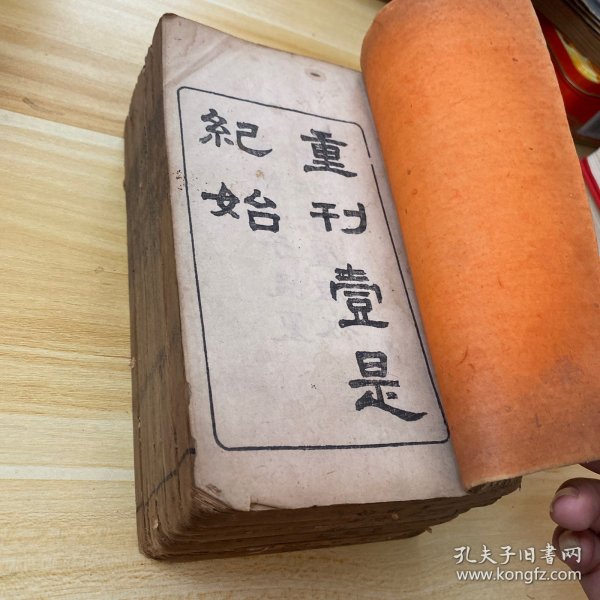 重刊壹是
紀始
孔夫子旧書网
www.kongfz.com